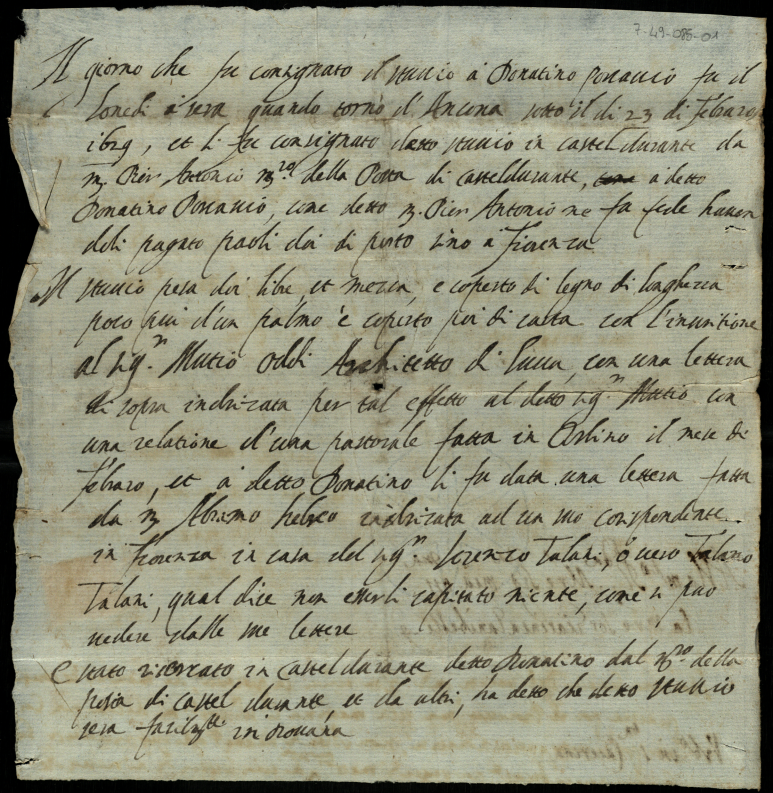 7-49-085-01
Il giorno che fu consignato il stuccio à Donatino Portuccio fu il
lonedi à sera quando tornò d'Ancona sotto il di 23 di febraro
1629, et li fu consignato detto stuccio in casteldurante da
m. Pier Antonio m.ro della Posta di casteldurante, à detto
Donatino, come detto m. Pier Antonio ne fa fede haver
deli pagato paoli doi di porto sino à Fiorenza
Il stuccio pesa doi libre, et mezza, e coperto di legno di longhezza
poco piu d'un palmo è coperto poi di carta con l'inscritione
al sig.r Mutio Oddi Architetto di Lucca, con una lettera
di sopra indrizata per tal effetto al detto sig.r Mutio con
una relatione d'una pastorale fatta in Urbino il mese di
febraro, et à detto Donatino li fu data una lettera fatta
da m Abramo hebreo indrizata ad un suo corispondente
in fiorenza in casa del sig.r Lorenzo Talani, ò vero Talano
Talani, qual dice non esserli capitato niente, come si può
vedere dalle sue lettere
E stato ricercato in casteldurante detto Donatino dal m.ro della
posta di castel durante, et da altri, ha detto che detto stuccio
sera in dovana